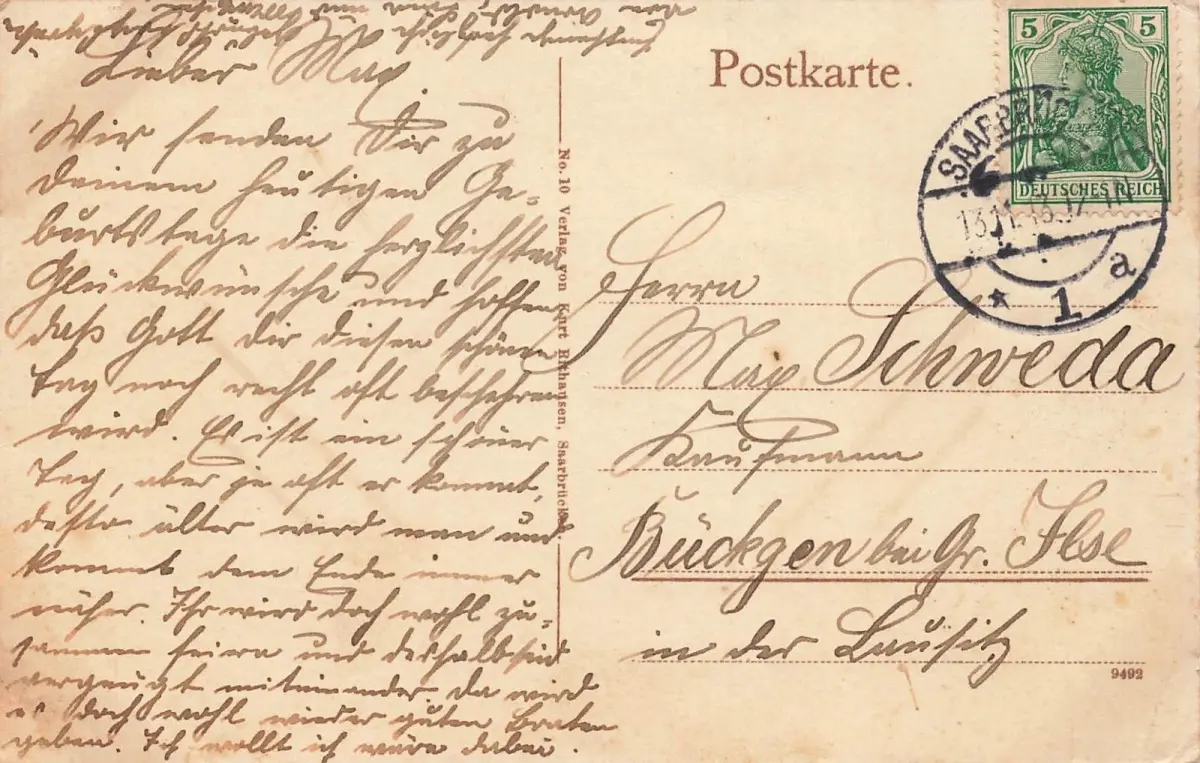 Lieber Max
Wir senden Dir zu
Deinem heutigen Ge-
burtstage die herzlichsten
Glückwünsche und hoffen
daß Gott dir diesen schönen
Tag noch recht oft bescheren
wird. Es ist ein schöner
Tag, aber je oft er kommt,
desto älter wird man und
kommt dem Ende immer
näher. Ihr wird doch wohl zu-
sammen feiern und deshalb seid
vergnügt miteinander. Da wird
es doch wohl wieder guten Braten
geben. Ich wollt ich wäre dabei.
No. 10 Verlag von Kurt Saarbrücken.
Postkarte.
5 5
DEUTSCHES REICH
SAARBRÜC
13.11.13.
* 1 a
Herrn
Max Schweda
Kaufmann
Bückgen bei Gr. Ilse
in der Lausitz
9492